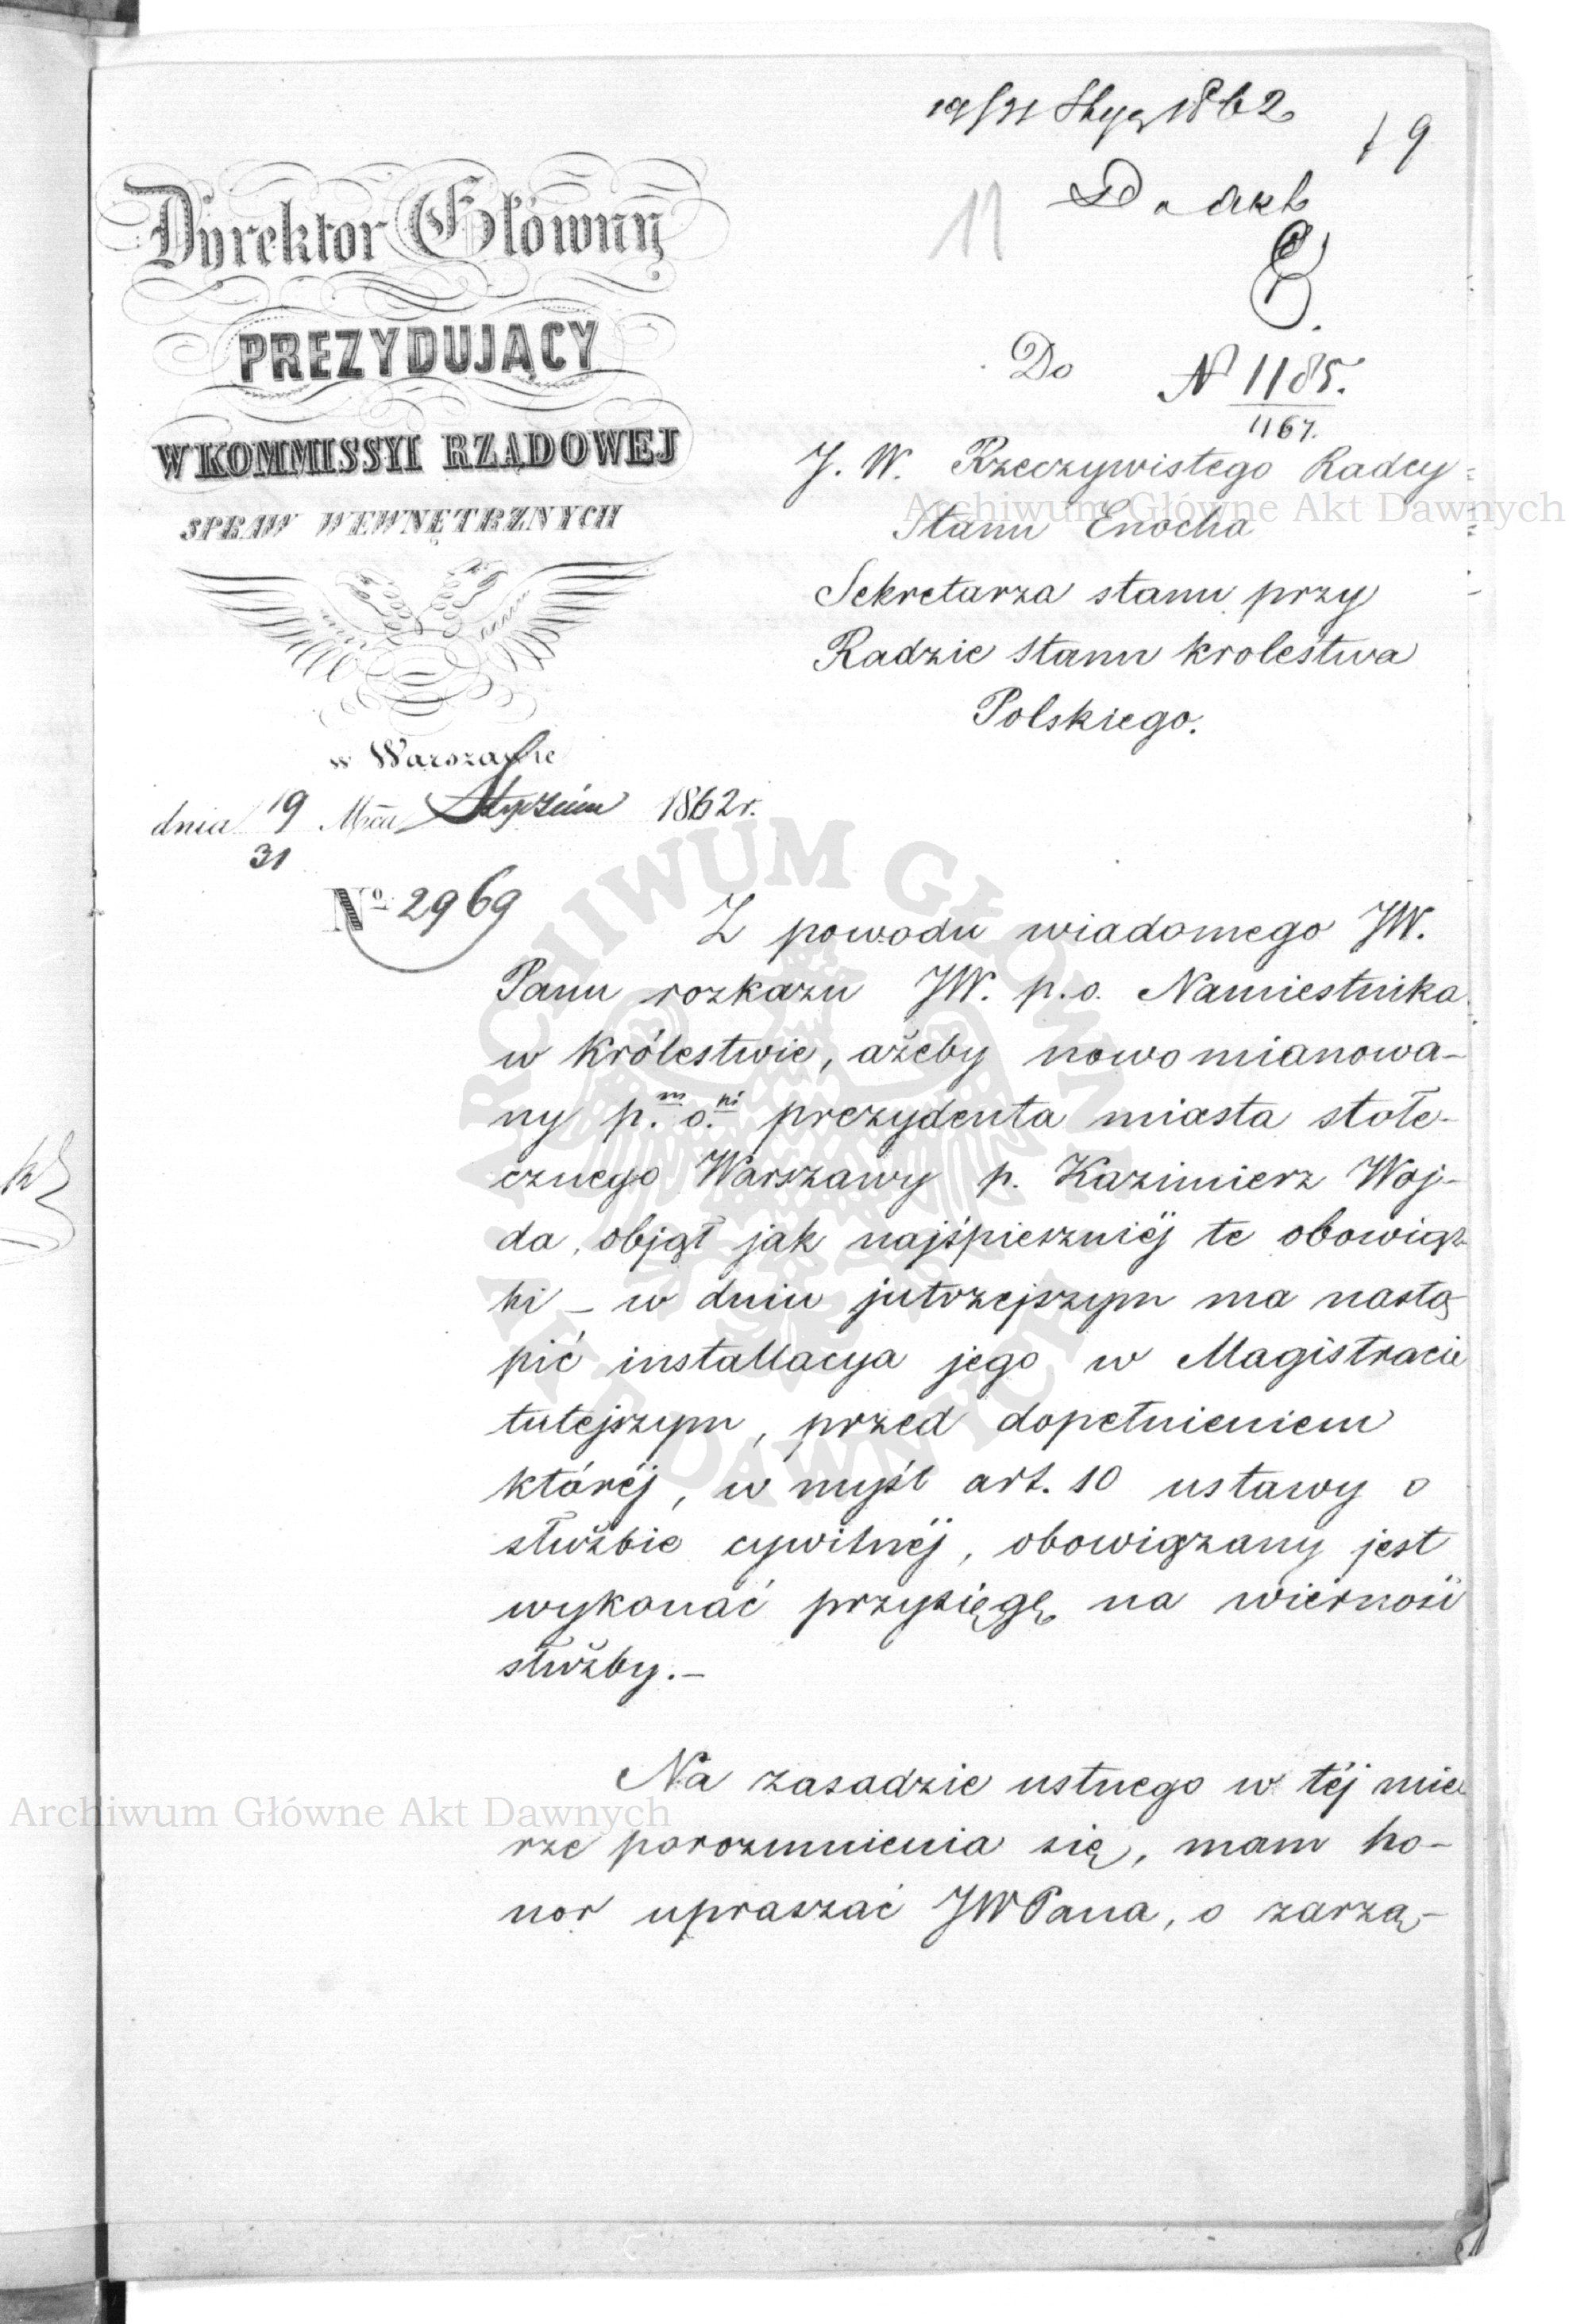 19/31 Stycz 1862
19
Do akt
11
E.
Dyrektor Główny
PREZYDUJĄCY
W KOMMISSYI RZĄDOWEJ
SPRAW WEWNĘTRZNYCH
w Warszawie
dnia 19/31 Mca Stycznia 1862 r.
No 2969
Do
N 1185.
1167.
J. W. Rzeczywistego Radcy
Stanu Enocha
Sekretarza stanu przy
Radzie stanu krolestwa
Polskiego.
Z powodu wiadomego JW.
Panu rozkazu JW. p.o. Namiestnika
w Królestwie, ażeby nowo mianowa-
ny p.m o.ki prezydenta miasta stołe-
cznego Warszawy p. Kazimierz Woj-
da, objął jak najśpieszniéj te obowiąz-
ki – w dniu jutrzejszym ma nastą-
pić installacya jego w Magistracie
tutejszym, przed dopełnieniem
któréj, w myśl art. 10 ustawy o
służbie cywilnéj, obowiązany jest
wykonać przysięgę na wierność
służby.–
Na zasadzie ustnego w téj mie-
rze porozumienia się, mam ho-
nor upraszać JWPana, o zarzą-
Archiwum Główne Akt Dawnych
Archiwum Główne Akt Dawnych
ARCHIWUM GŁÓWNE AKT DAWNYCH